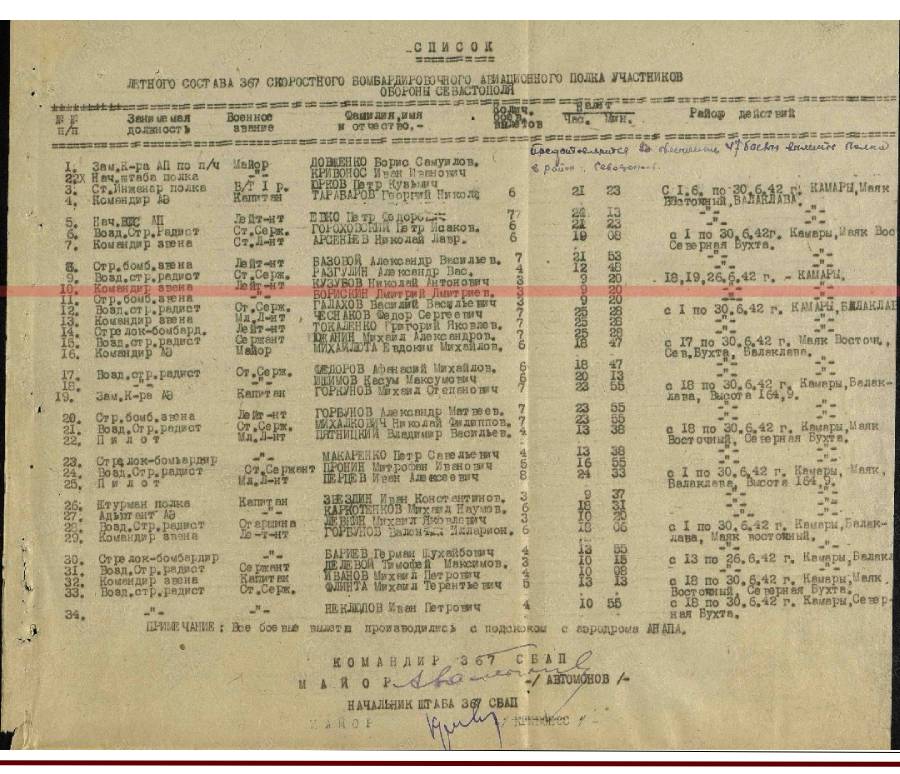 СПИСОК
ЛЕТНОГО СОСТАВА 367 СКОРОСТНОГО БОМБАРДИРОВОЧНОГО АВИАЦИОННОГО ПОЛКА УЧАСТНИКОВ
ОБОРОНЫ СЕВАСТОПОЛЯ
№ № п/п Занимаемая должность Военное звание Фамилия,имя и отчество.- Колич. боев. вылетов Налет Час. Мин. Район действий
47 боевых вылетов полка
в район
1. Зам.К-ра АП по п/ч Майор ДОВШЕНКО Борис Самуилов.
2. Нач.штаба полка -"- КРИВОНОС Иван Иванович
3. Ст.Инженер полка В/Т I р. ЮРКОВ Петр Кузьмич
4. Командир АЭ Капитан ТАРАБАРОВ Георгий 6 21 23 С I.6. по 30.6.42 г. КАМАРЫ,Маяк
Восточный,БАЛАКЛАВА.
5. АП Лейт-нт Петр Федорович 13 -"-
6. Возд.Стр.Радист Ст.Серж. ГОРОХОВСКИЙ Петр Исаков. 6 21 23 -"-
7. Командир звена Ст.Л-нт АРСЕНЬЕВ Николай Лавр. 6 19 08 с I по 30.6.42г. Камары,Маяк Вос
Северная Бухта.
8. Стр.бомб.звена Лейт-нт БАЗОВОЙ Александр Васильев. 7 21 53 -"-
9. Возд.стр.радист Ст.Серж. РАЗГУЛИН Александр Вас. 4 12 48 -"-
10. Командир звена Лейт-нт КУЗУБОВ Николай Антонович 3 9 20 18,19,26.6.42 г. - КАМАРЫ.
11. Стр.бомб.звена -"- БОРИСКИН Дмитрий Дмитриев. 3 9 20 -"-
12. Возд.стр.радист Ст.Серж. ГАЛАХОВ Василий Васильевич 3 9 20 -"-
13. Командир звена Мл.Л-нт ЧЕСНАКОВ Федор Сергеевич 7 25 28 с I по 30.6.42 г. КАМАРЫ,БАЛАКЛАВ
14. Стрелок-бомбард. Лейт-нт ТОКАЛЕНКО Григорий Яковлев. 7 25 28 -"-
15. Возд.стр.радист Сержант ЮЖАНИН Михаил Александров. 7 25 28 -"-
16. Командир АЭ Майор МИХАЙЛЮТА Евдоким Михайлов. 6 18 47 с 17 по 30.6.42 г. Маяк Восточ.,
Сев.Бухта, Балаклава.
17. Возд.стр.радист Ст.Серж. ФЕДОРОВ Афанасий Михайлов. 6 18 47 -"-
18. -"- -"- Касум Максумович 6 20 13 -"-
19. Зам.К-ра АЭ Капитан ГОРКУНОВ Михаил Степанович 7 23 55 с 18 по 30.6.42 г. Камары,Балак-
лава, Высота 164,9.
20. Стр.бомб.звена Лейт-нт ГОРБУНОВ Александр Матвеев. 7 23 55 -"-
21. Возд.Стр.Радист Ст.Серж. МИХАЛКОВИЧ Николай Филиппов. 7 23 55 -"-
22. Пилот Мл.Л-нт ПЯТНИЦКИЙ Владимир Васильев. 4 13 38 с 18 по 30.6.42 г. Камары,Маяк
Восточный, Северная Бухта.
23. Стрелок-бомбардир -"- МАКАРЕНКО Петр Савельевич 4 13 38 -"-
24. Возд.Стр.радист Ст.Сержант ПРОНИН Митрофан Иванович 5 16 55 -"-
25. Пилот Мл.Л-нт ПЕРЦЕВ Иван Алексеевич 8 24 33 с I по 30.6.42 г. Камары, Маяк,
Балаклава, Высота 164,9.
26. Штурман полка Капитан ЗВЕЗДИН Иван Константинов. 3 9 37 -"-
27. Адъютант АЭ -"- КАРКОТЕНКОВ Михаил Наумов. 6 18 31 -"-
28. Возд.Стр.радист Старшина ЛЕВКИН Михаил Яковлевич 3 10 20 -"-
29. Командир звена ГОРБУНОВ Валентин Илларион. 6 18 06 с I по 30.6.42 г. Камары,Балак-
лава, Маяк восточный.
30. Стрелок-бомбардир -"- БАРИЕВ Герман Шухайбович 4 13 55 -"-
31. Возд.Стр.радист Сержант Тимофей Максимов. 3 10 15 с 13 по 26.6.42 г. Камары,Балакл
32. Командир звена Капитан ИВАНОВ Михаил Петрович 4 10 08 -"-
33. Возд.стр.радист Ст.Серж. ФЛИНТА Михаил Терентьевич 5 13 13 с 18 по 30.6.42 г. Камары,Маяк
Восточный, Северная Бухта.
34. -"- -"- НЕКЛЮДОВ Иван Петрович 4 10 55 с 18 по 30.6.42 г. Камары,Север-
ная Бухта.
ПРИМЕЧАНИЕ: Все боевые вылеты производились с подскоком с аэродрома АНАПА.
КОМАНДИР 367 СБАП
МАЙОР -/АВТОМОНОВ/-
НАЧАЛЬНИК ШТАБА 367 СБАП
МАЙОР /КРИВОНОС/